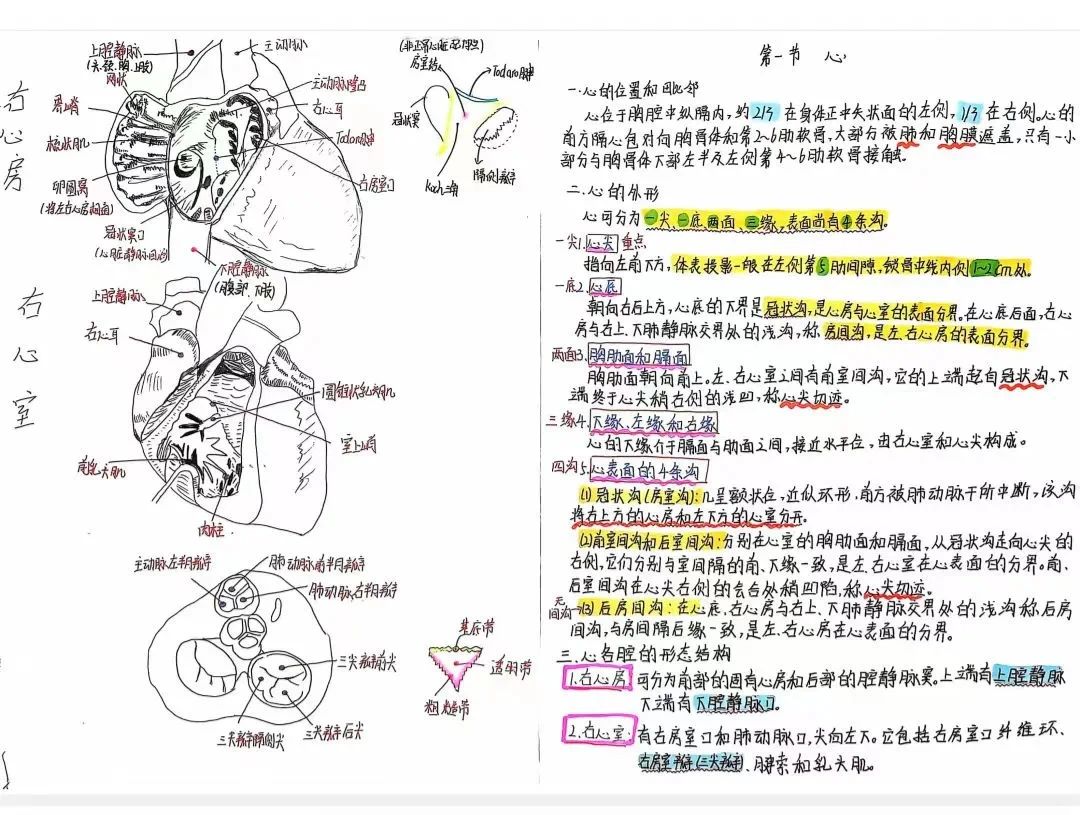 右心房
上腔静脉
(头、颈、胸、上肢)
主动脉
界嵴
梳状肌
卵圆窝
冠状窦口
下腔静脉
(腹部、下肢)
主动脉隆凸
右心耳
Todaro腱
右房室口
房室结
Todaro腱
冠状窦
Koch三角
隔侧瓣
右心室
上腔静脉
右心耳
前乳头肌
圆锥状乳头肌
室上嵴
肉柱
主动脉左半月瓣
肺动脉前半月瓣
肺动脉右半月瓣
三尖瓣前尖
三尖瓣隔侧尖
三尖瓣后尖
基底带
透明带
粗糙带
第一节 心
一.心的位置和毗邻
心位于胸腔中纵隔内，约2/3在身体正中矢状面的左侧，1/3在右侧。心的
前方隔心包对向胸骨体和第2~6肋软骨，大部分被肺和胸膜遮盖，只有一小
部分与胸骨体下部左半及左侧第4~6肋软骨接触。
二.心的外形
心可分为一尖、一底、两面、三缘，表面尚有4条沟。
一尖1.心尖 重点
指向左前下方，体表投影一般在左侧第5肋间隙，锁骨中线内侧1~2cm处。
一底2.心底
朝向右后上方，心底的下界是冠状沟，是心房与心室的表面分界。在心底后面，右心
房与右上、下肺静脉交界处的浅沟，称房间沟，是左、右心房的表面分界。
两面3.胸肋面和膈面
胸肋面朝向前上。左、右心室之间有前室间沟，它的上端起自冠状沟，下
端终于心尖稍右侧的浅凹，称心尖切迹。
三缘4.下缘、左缘和右缘
心的下缘介于膈面与肋面之间，接近水平位，由右心室和心尖构成。
四沟5.心表面的4条沟
(1)冠状沟(房室沟)：几呈额状位，近似环形，前方被肺动脉干所中断，该沟
将右上方的心房和左下方的心室分开。
(2)前室间沟和后室间沟：分别在心室的胸肋面和膈面，从冠状沟走向心尖的
右侧，它们分别与室间隔的前、下缘一致，是左、右心室在心表面的分界。前、
后室间沟在心尖右侧的会合处稍凹陷，称心尖切迹。
(3)后房间沟：在心底，右心房与右上、下肺静脉交界处的浅沟称后房
间沟，与房间隔后缘一致，是左、右心房在心表面的分界。
三.心各腔的形态结构
1.右心房 可分为前部的固有心房和后部的腔静脉窦。上端有上腔静脉
下端有下腔静脉口。
2.右心室：有右房室口和肺动脉口，尖向左下。它包括右房室口纤维环、
右房室瓣(三尖瓣)、腱索和乳头肌。